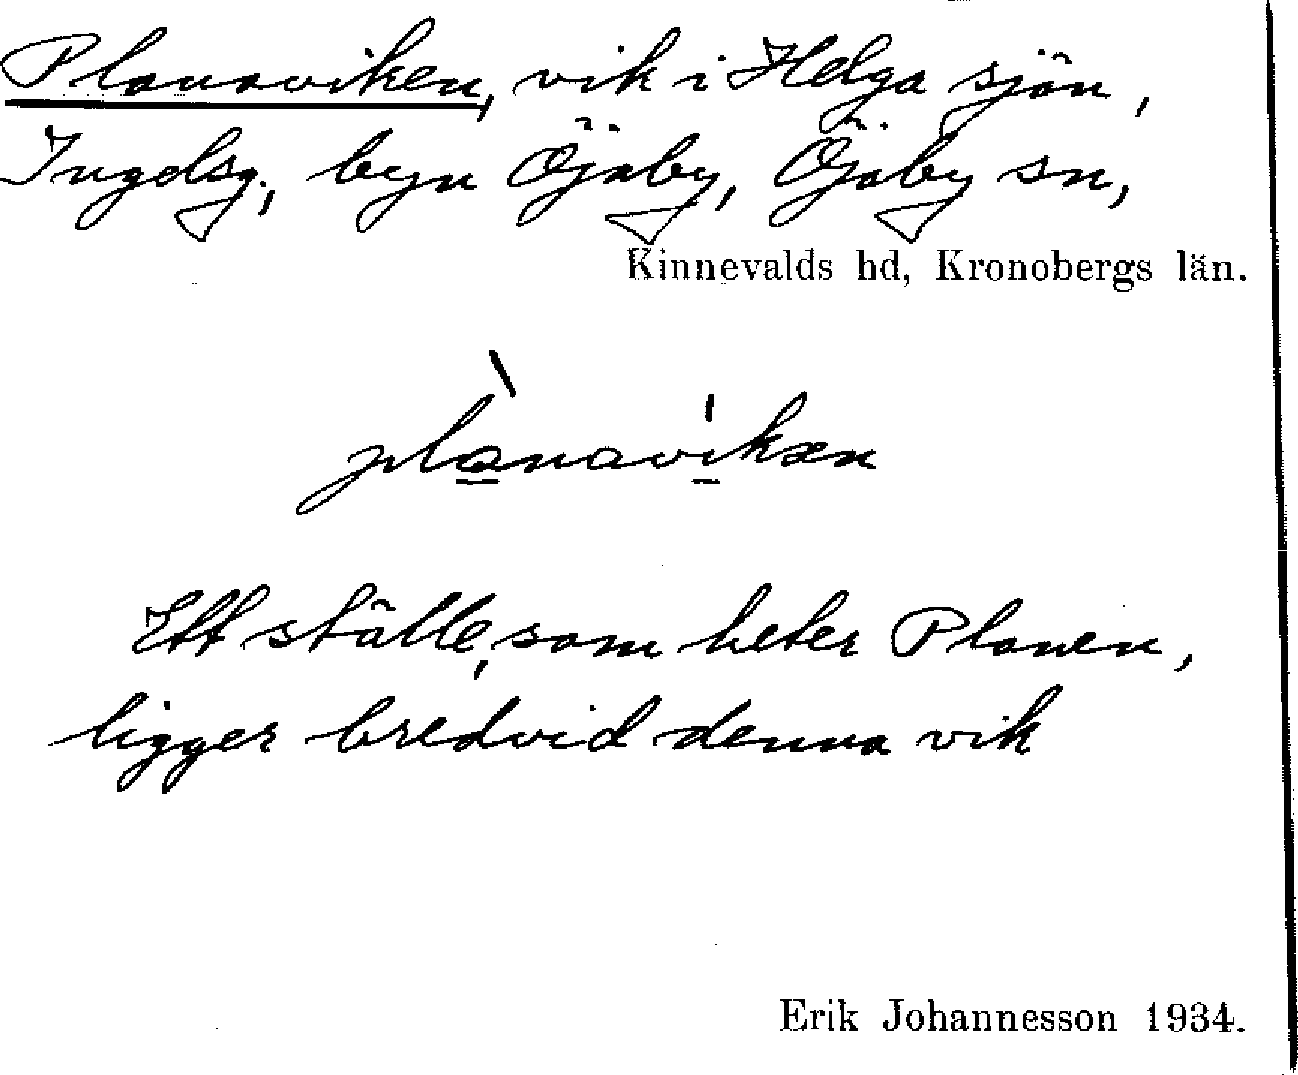 Planaviken, vik i Helga sjön,
Ingelsg., byn Öjaby, Öjaby sn,
Kinnevalds hd, Kronobergs län.
plànavikæn
Ett ställe, som heter Planen,
ligger bredvid denna vik
Erik Johannesson 1934.